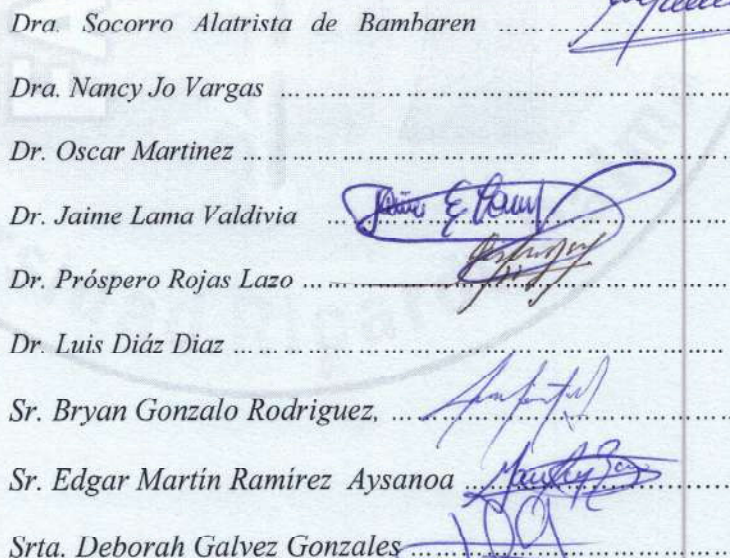 Dra. Socorro Alatrista de Bambaren ............
Dra. Nancy Jo Vargas ............
Dr. Oscar Martinez ............
Dr. Jaime Lama Valdivia ............
Dr. Próspero Rojas Lazo ............
Dr. Luis Diáz Diaz ............
Sr. Bryan Gonzalo Rodriguez, ............
Sr. Edgar Martín Ramírez Aysanoa ............
Srta. Deborah Galvez Gonzales ............